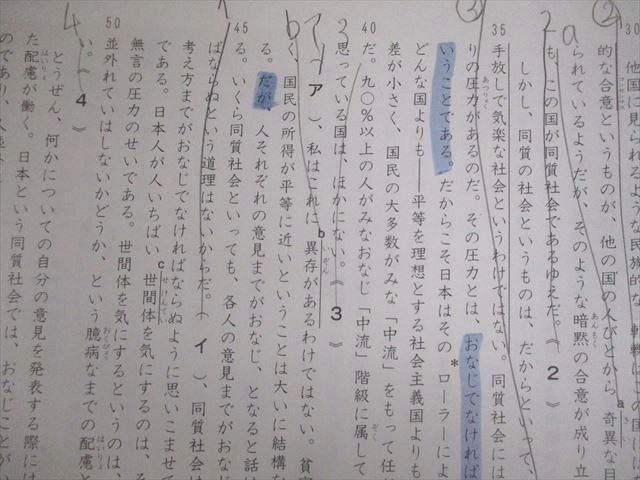 30 他国に見られるような民族的な
的な合意というものが、他の国の人びとから a奇異な目
られているようだが、そのような暗黙の合意が成り立
も、この国が同質社会であるゆえだ。《 2 》
しかし、同質の社会というものは、だからといって、
35 手放しで気楽な社会というわけではない。同質社会には
りの圧力があるのだ。その圧力とは、おなじでなければ
いうことである。だからこそ日本はその*ローラーによ
どんな国よりも――平等を理想とする社会主義国よりも
差が小さく、国民の大多数がみな「中流」をもって任
40 だ。九〇％以上の人がみなおなじ「中流」階級に属して
思っている国は、ほかにない。《 3 》
（ ア ）、私はこれに b異存があるわけではない。貧富
く、国民の所得が平等に近いということは大いに結構な
る。だが、人それぞれの意見までがおなじ、となると話は
45 る。いくら同質社会といっても、各人の意見までがおなじ
ばならぬという道理はないからだ。（ イ ）、同質社会は
考え方までがおなじでなければならぬように思いこませて
である。日本人が人いちばい c世間体を気にするのは、そ
無言の圧力のせいである。世間体を気にするというのは、
50 並外れていはしないかどうか、という臆病なまでの配慮と
い。《 4 》
とうぜん、何かについての自分の意見を発表する際には
た配慮が働く。日本という同質社会では、おなじことが
のであり、